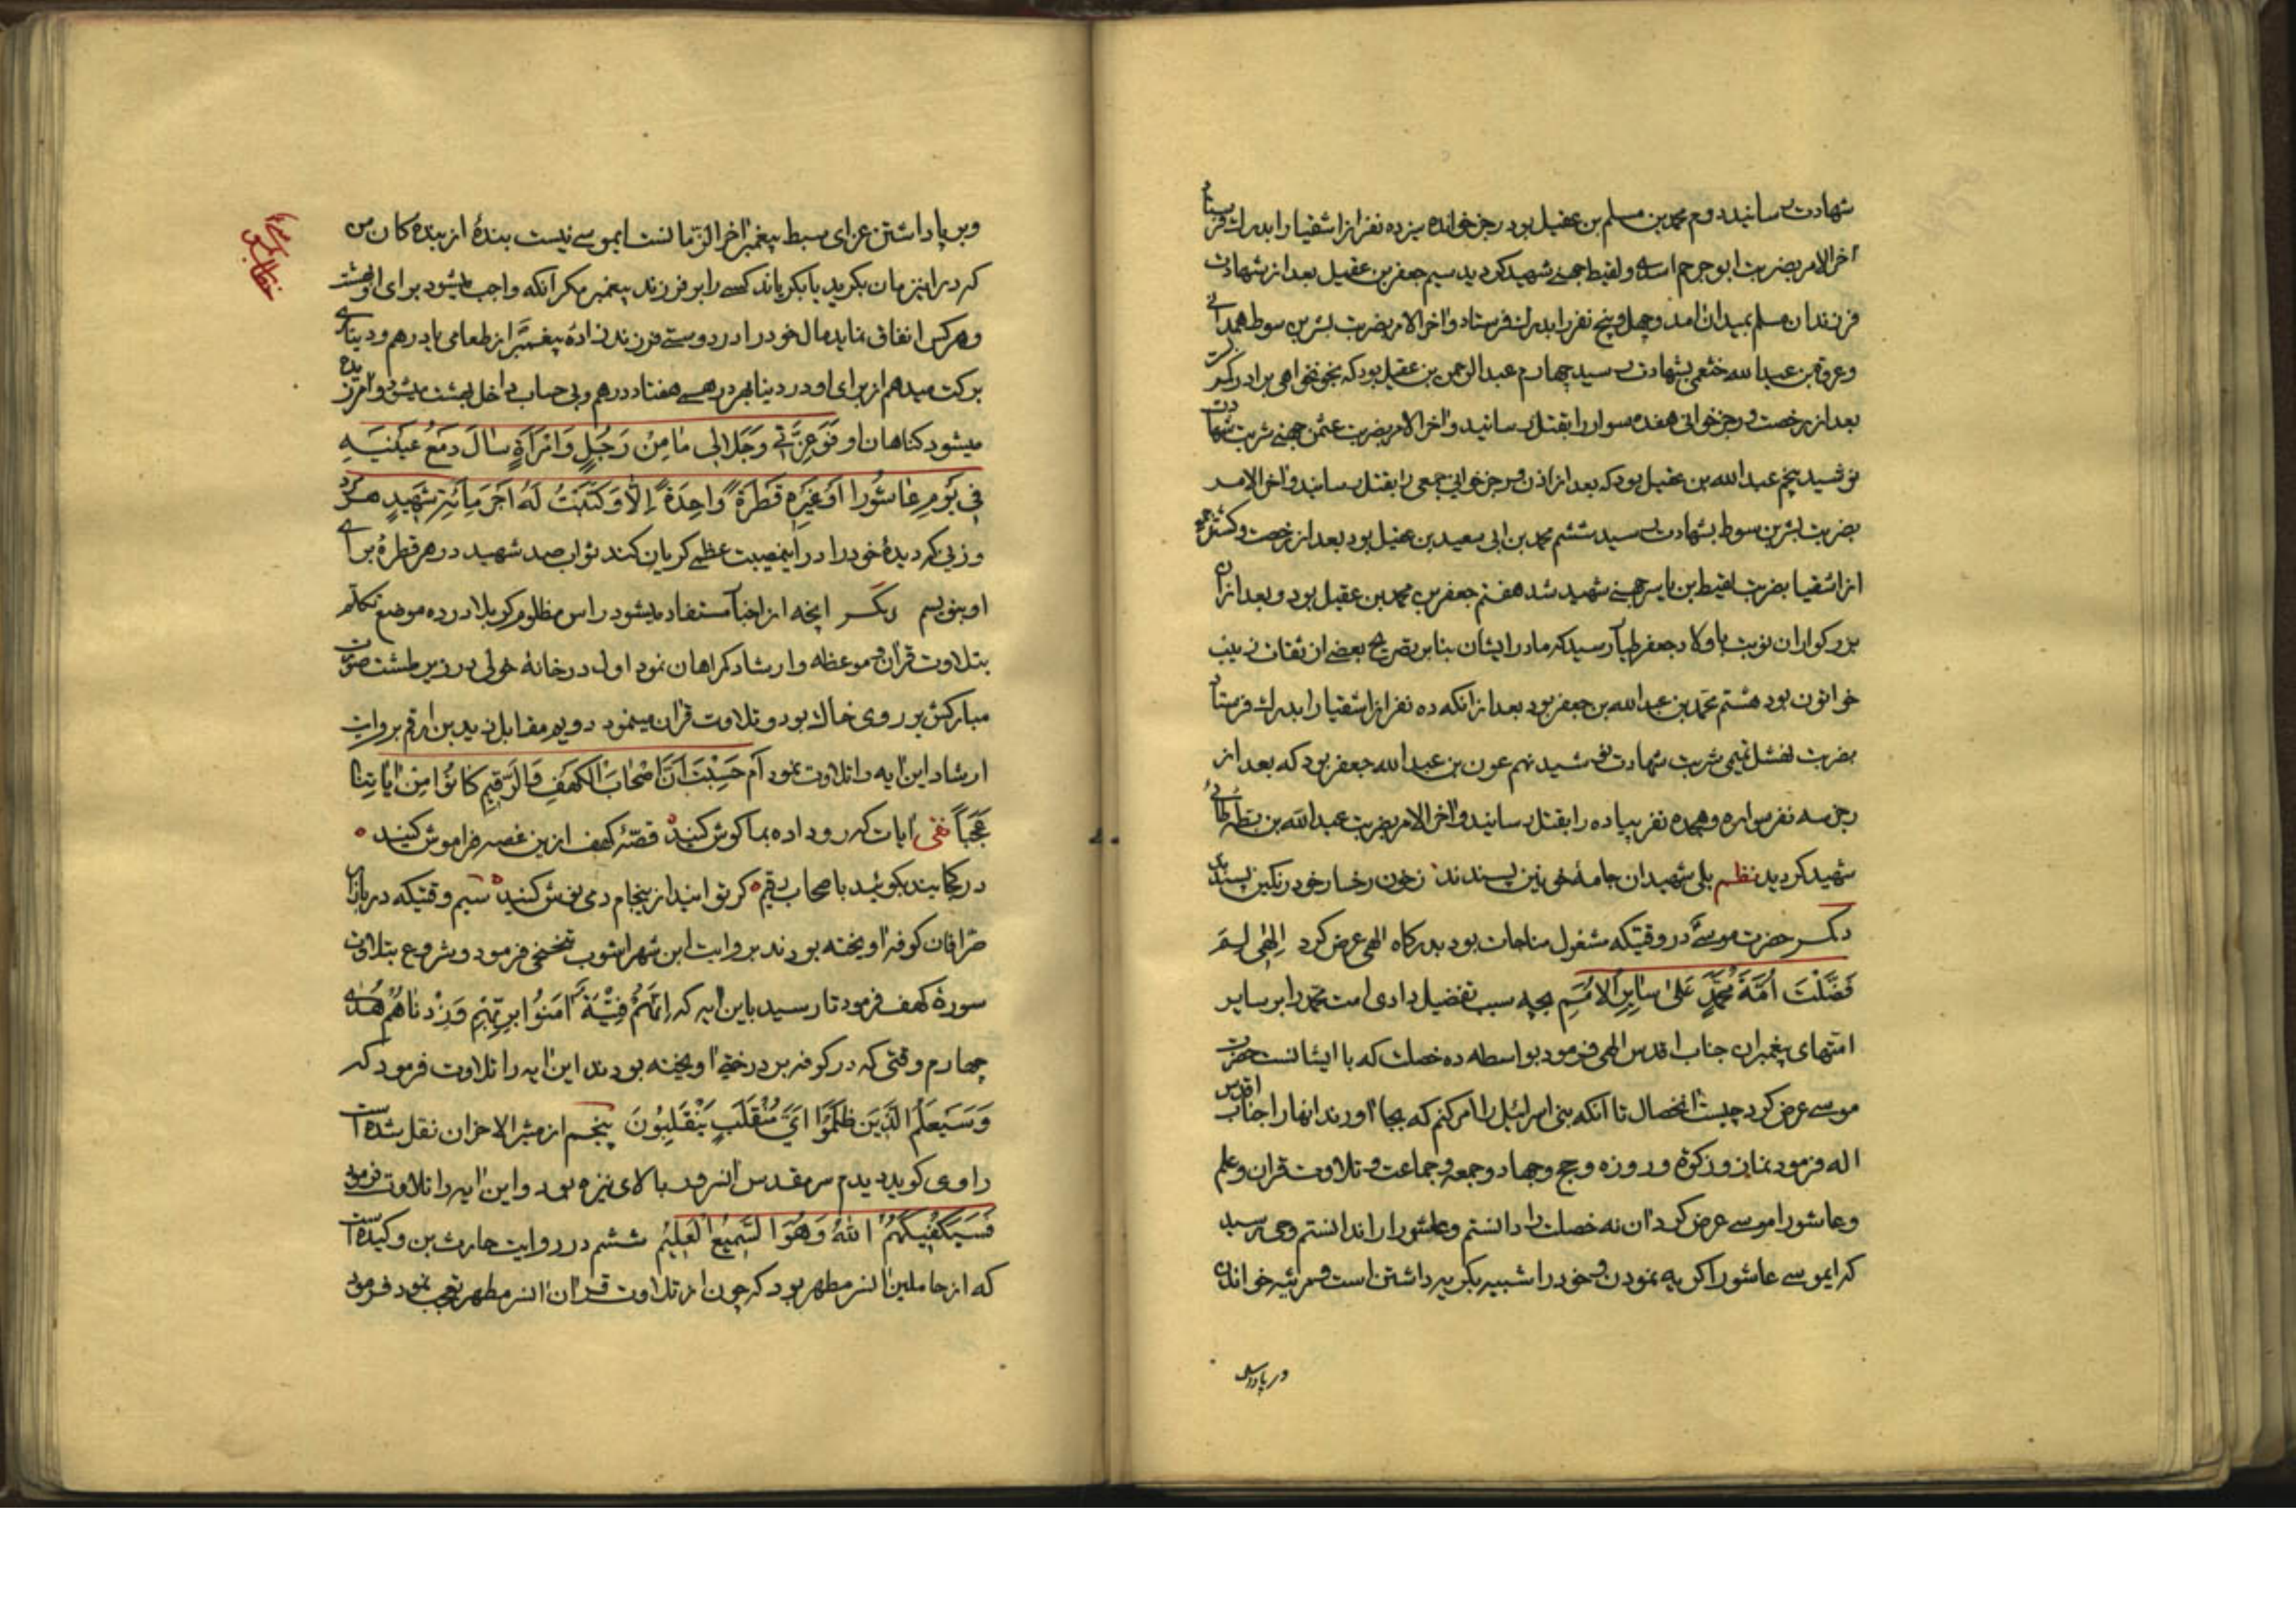 شهادت رسانید دوم محمد بن مسلم بن عقیل بود رجز خوانده سیزده نفر از اشقیا را بدرک فرستاد
آخر الامر بضربت ابو جرهم اسدی و لقیط جهنی شهید کردید سیم جعفر بن عقیل بعد از شهادت
فرزندان مسلم بمیدان آمد و چهل و پنج نفر را بدرک فرستاد و آخر الامر بضربت بشر بن سوط همدانی
و عروة بن عبدالله خثعمی بشهادت رسید چهارم عبدالرحمن بن عقیل بود که
بعد از رخصت و رجز خوانی هفده سوار را بقتل رسانید و آخر الامر بضربت عثمن جهنی شربت شهادت
نوشید پنجم عبدالله بن عقیل بود که بعد از اذن و رجز خوانی جمعی را بقتل رسانید و آخر الامر
بضربت بشر بن سوط بشهادت رسید ششم محمد بن ابی سعید بن عقیل بود بعد از رخصت و کشتن
از اشقیا بضربت لقیط بن یاسر جهنی شهید شد هفتم جعفر بن محمد بن عقیل بود و بعد از آن
بزرکواران نوبت باولاد جعفر طیار رسید که مادر ایشان بنابر تصریح بعضی از ثقات زینب
خواتون بود هشتم محمد بن عبدالله بن جعفر بود بعد از انکه ده نفر از اشقیا را بدرک فرستاد
بضربت نهشل تمیمی شربت شهادت نوشید نهم عون بن عبدالله جعفر بود که بعد از
رجز سه نفر سواره و هیجده نفر پیاده را بقتل رسانید و آخر الامر بضربت عبدالله بن بطه طائی
شهید کردید نظم بلی شهیدان جامهٔ خونین پسندند ز خون رخسار خود رنکین پسندند
دکر حضرت موسی در وقتیکه مشغول مناجات بود بدرکاه الهی عرض کرد اِلهٰی لِمَ
فَضَّلْتَ اُمَّةَ مُحَمَّدٍ عَلیٰ سٰایِرِ الاُمَمِ بچه سبب تفضیل دادی امت محمد را بر سایر
امتهای پیغمبران جناب اقدس الهی فرمود بواسطه ده خصلت که با ایشانست حضرت
موسی عرض کرد چیست آنخصال تا آنکه بنی اسرائیل را امر کنم که بجا آورند انها را جناب اقدس
اله فرمود نماز و زکوة و روزه و حج و جهاد و جمعه و جماعت و تلاوت قران و علم
و عاشورا موسی عرض کرد آن نه خصلت را دانستم و عاشورا را ندانستم وحی رسید
که ایموسی عاشورا کریه نمودن و خود را شبیه بکریه داشتن است و مرثیه خواندن
و بر پا داشتن
و بر پا داشتن عزای سبط پیغمبر آخر الزمانست ایموسی نیست بندهٔ از بنده کان من
که در آنزمان بکرید یا بکریاند کسی را بر فرزند پیغمبر مکر آنکه واجب میشود برای او بهشت
و هر کس انفاق نماید مال خود را در دوستی فرزند زادهٔ پیغمبر از طعامی یا درهم و دیناری
برکت میدهم از برای او در دینا بهر درهمی هفتاد درهم و بی حساب داخل بهشت میشود و آمرزیده
میشود کناهان او فَوَ عِزَّتی وَ جَلالی مٰا مِنْ رَجُلٍ وَ امْرَاَةٍ سٰالَ دَمْعُ عَیْنَیْهِ
فی یَوْمِ عٰاشُورا اَوْ غَیْرِهِ قَطْرَةً وٰاحِدَةً اِلّٰا وَ کَتَبْتُ لَهُ اَجْرَ مِائَةِ شَهیدٍ هر مرد
و زنی که دیدهٔ خود را در اینمصیبت عظمی کریان کند ثواب صد شهید در هر قطرهٔ برای
او بنویسم دیکر انچه از اخبار مستفاد میشود راس مظلوم کربلا در ده موضع تکلم
بتلاوت قران و موعظه و ارشاد کمراهان نمود اول در خانهٔ خولی در زیر طشت صورت
مبارکش بر روی خاک بود و تلاوت قران مینمود دویم مقابل زید بن ارقم بروایت
ارشاد این آیه را تلاوت نمود اَمْ حَسِبْتَ اَنَّ اَصْحٰابَ الْکَهْفِ وَ الرَّقیمِ کٰانُوا مِنْ آیٰاتِنٰا
عَجَباً آیات که رو داده بما کوش کنید قصّهٔ کهف ازین غصه فراموش کنید
در کجایند بکوئید باصحاب رقیم کر توانید ازینجام دمی نوش کنید سیم وقتیکه در بازار
صرافان کوفه آویخته بودند بروایت ابن شهر آشوب تنحنحی فرمود و شروع بتلاوت
سورهٔ کهف فرمود تا رسید باین آیه که اِنَّهُمْ فِتْیَةٌ آمَنُوا بِرَبِّهِمْ وَ زِدْنٰاهُمْ هُدیً
چهارم وقتی که در کوفه بر درختی آویخته بودند این آیه را تلاوت فرمود که
وَ سَیَعْلَمُ الَّذینَ ظَلَمُوا اَیَّ مُنْقَلَبٍ یَنْقَلِبُونَ پنجم از مثیر الاحزان نقل شده است
راوی کوید دیدم سر مقدس آنسرور بالای نیزه بود و این آیه را تلاوت فرمود
فَسَیَکْفیکَهُمُ اللّٰهُ وَ هُوَ السَّمیعُ الْعَلیمُ ششم در روایت حارث بن وکیده است
که از حاملین آنسر مطهر بود که چون از تلاوت قرآن آنسر مطهر تعجب نمود فرمود